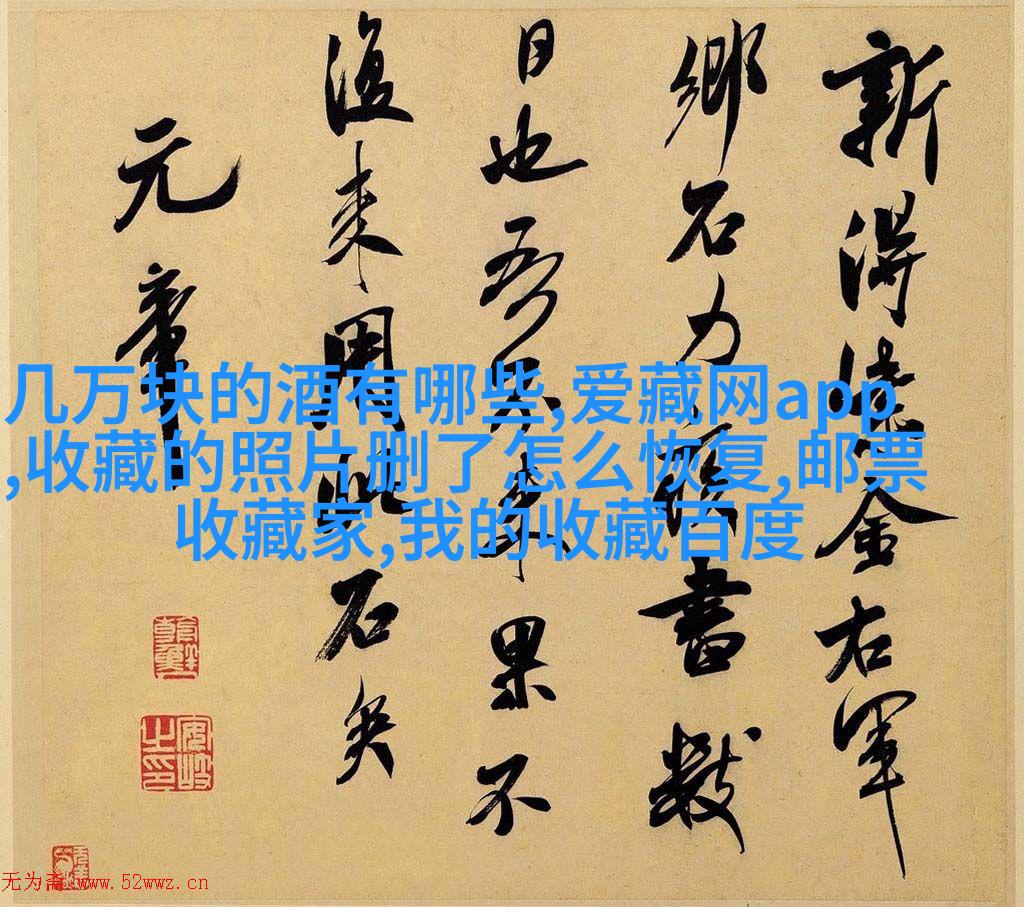 新得紫金右軍
鄉石力疾書數
日也吾不来果不
復来用此石矣
元章
几万块的酒有哪些,爱藏网app
,收藏的照片删了怎么恢复,邮票
收藏家,我的收藏百度
无为斋 www.52wwz.cn